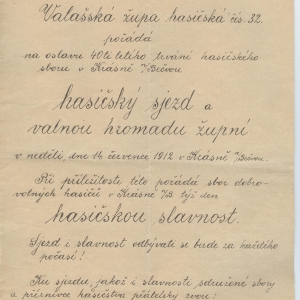 Valašská župa hasičská čís. 32.
pořádá
na oslavu 40ti letého trvání hasičského
sboru v Krásně n/Bečvou
hasičský sjezd a
valnou hromadu župní
v neděli, dne 14. července 1912 v Krásně n/Bečvou.
Při příležitosti této pořádá sbor dobro-
volných hasičů v Krásně n/B. týž den
hasičskou slavnost.
Sjezd i slavnost odbývati se bude za každého
počasí!
Ku sjezdu, jakož i slavnosti sdružené sbory
a příznivce hasičstva přátelsky zvou: